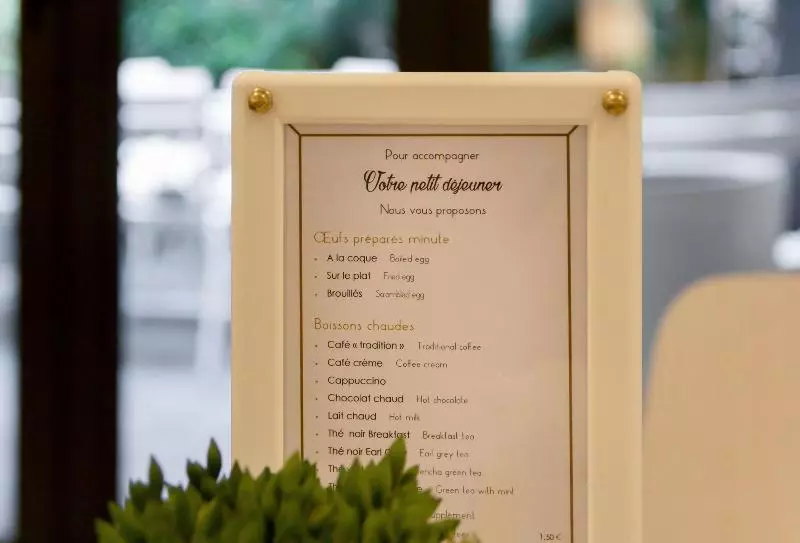 Pour accompagner
Votre petit déjeuner
Nous vous proposons
Œufs préparés minute
• A la coque Boiled egg
• Sur le plat Fried egg
• Brouillés Scrambled egg
Boissons chaudes
• Café « tradition » Traditional coffee
• Café crème Coffee cream
• Cappuccino
• Chocolat chaud Hot chocolate
• Lait chaud Hot milk
• Thé noir Breakfast Breakfast tea
• Thé noir Earl Earl grey tea
• Thé green tea
Green tea with mint
1,50 €